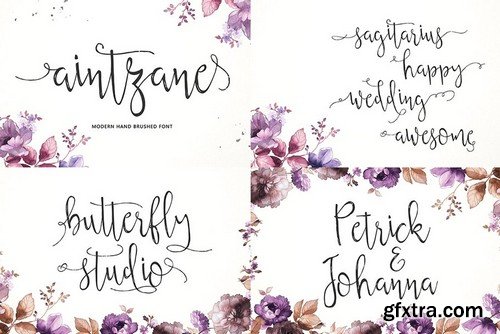 aintzane
MODERN HAND BRUSHED FONT
sagitarius
happy
wedding
awesome
butterfly
studio
Petrick
&
Johanna
gfxtra.com